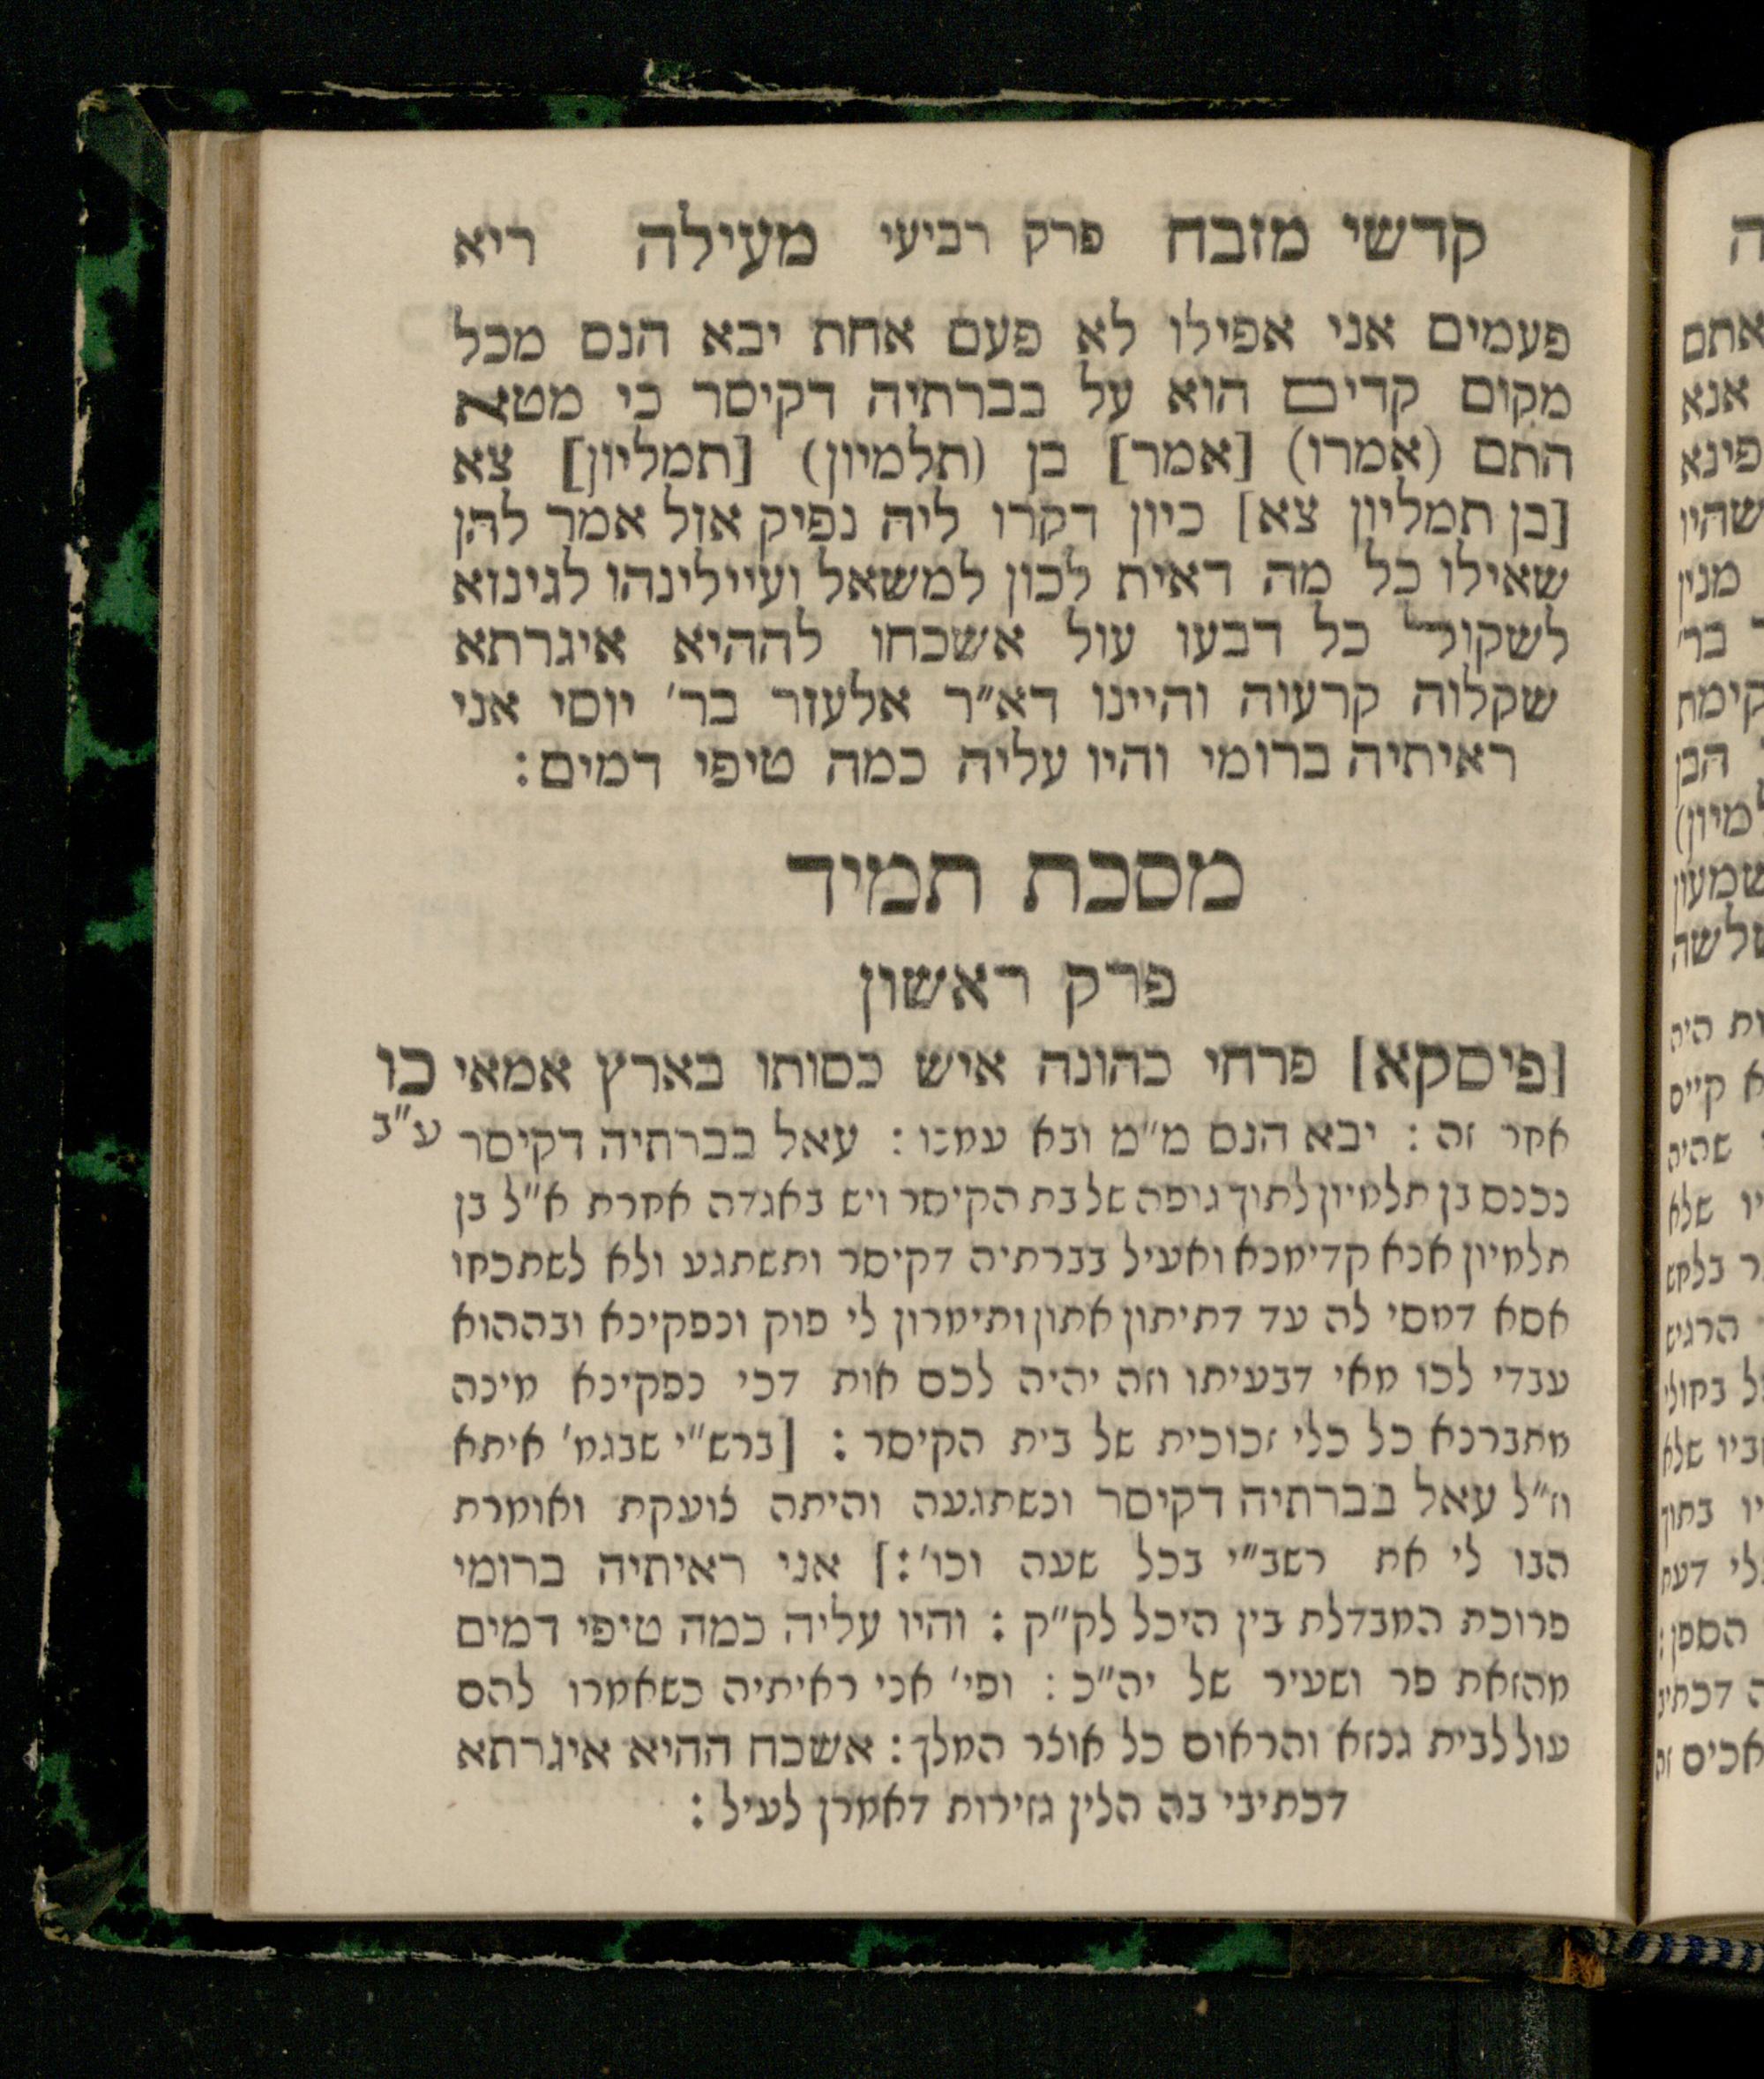 קדשי מזבח פרק רביעי מעילה ריא
פעמים אני אפילו לא פעם אחת יבא הנס מכל
מקום קדים הוא על בברתיה דקיסר כי מטא
התם (אמרו) [אמר] בן (תלמיון) [תמליון] צא
[בן תמליון צא] כיון דקרו ליה נפיק אזל אמר להן
שאילו כל מה דאית לכון למשאל ועיילינהו לגינזא
לשקול כל דבעו עול אשכחו לההיא איגרתא
שקלוה קרעוה והיינו דא״ר אלעזר בר׳ יוסי אני
ראיתיה ברומי והיו עליה כמה טיפי דמים:
מסכת תמיד
פרק ראשון
[פיסקא] פרחי כהונה איש כסותו בארץ אמאי כו
ע״ב
אחר זה: יבא הנס מ״מ ובא עמנו: עאל בברתיה דקיסר
נכנס בן תלמיון לתוך גופה של בת הקיסר ויש באגדה אחרת א״ל בן
תלמיון אנא קדימנא ואעיל בברתיה דקיסר ותשתגע ולא לשתכחו
אסא דמסי לה עד דתיתון אתון ותימרון לי פוק ונפקינא ובההוא
עבדי לכו מאי דבעיתו וזה יהיה לכם אות דכי נפקינא מינה
מתברנא כל כלי זכוכית של בית הקיסר: [ברש״י שבגמ׳ איתא
וז״ל עאל בברתיה דקיסר ונשתגעה והיתה צועקת ואומרת
הבו לי את רשב״י בכל שעה וכו׳:] אני ראיתיה ברומי
פרוכת המבדלת בין היכל לק״ק: והיו עליה כמה טיפי דמים
מהזאת פר ושעיר של יה״כ: ופי׳ אני ראיתיה כשאמרו להם
עולו לבית גנזא והראום כל אוצר המלך: אשכח ההיא איגרתא
דכתיבי בה הלין גזירות דאמרן לעיל: